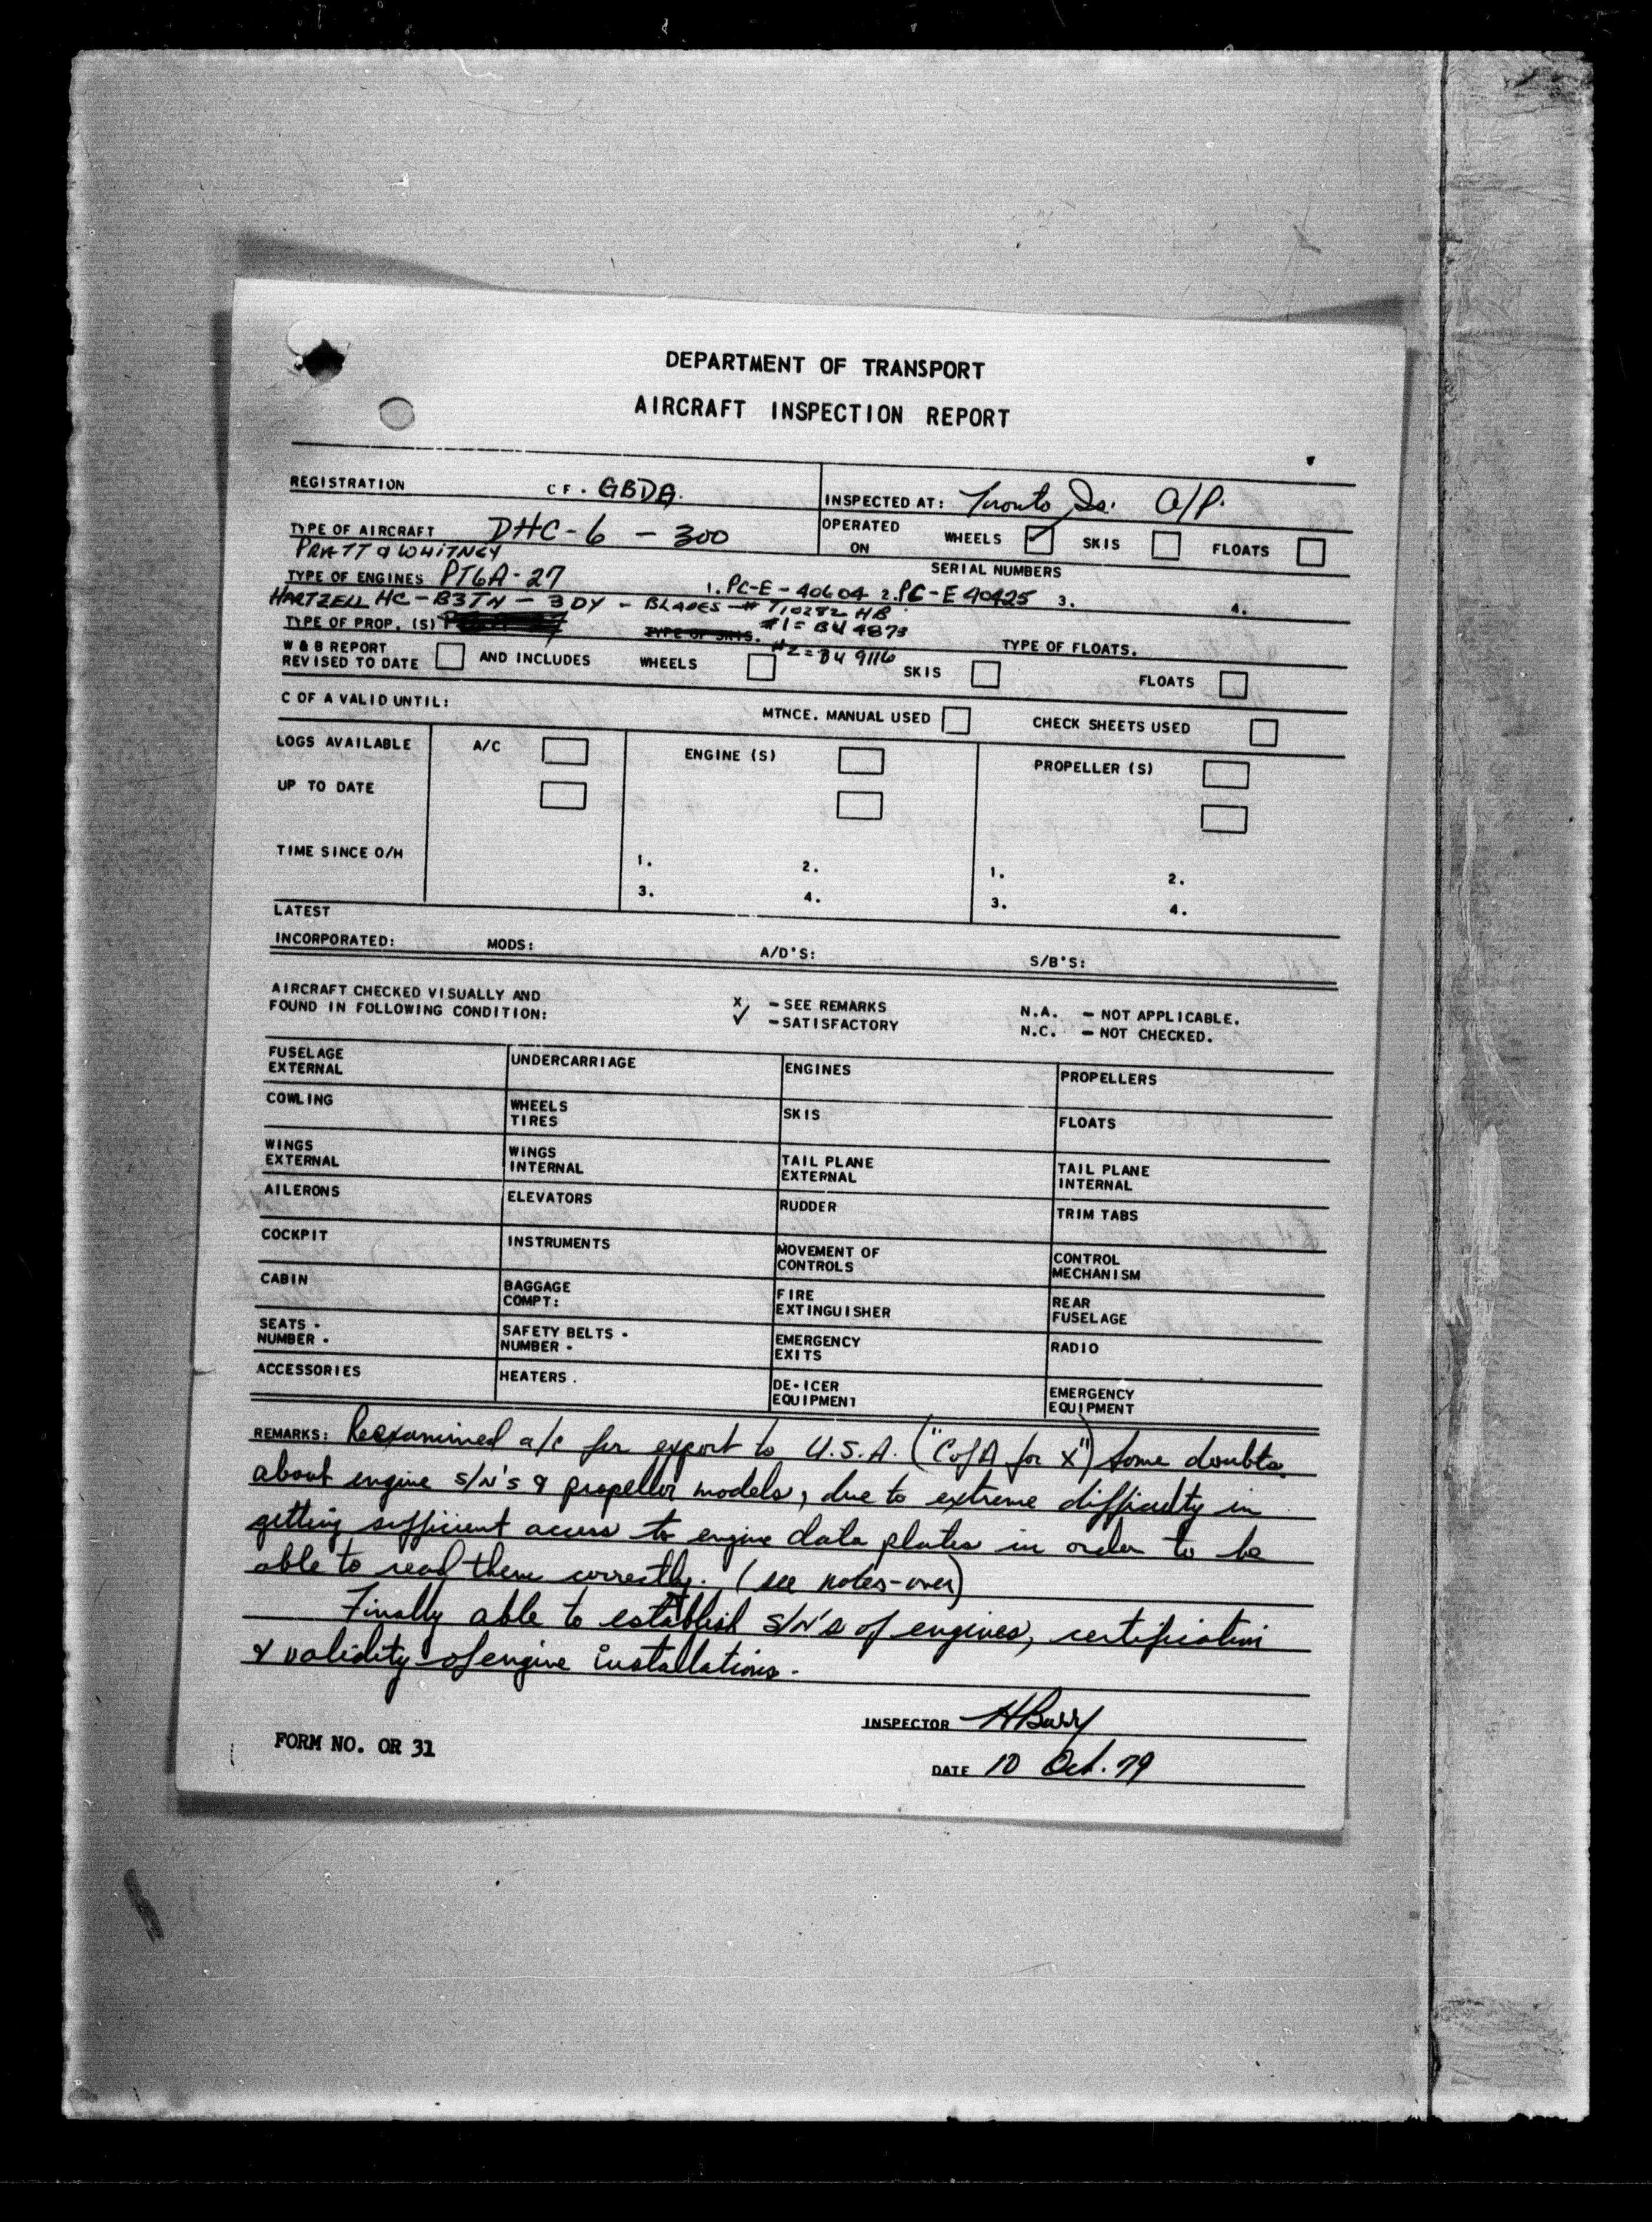 DEPARTMENT OF TRANSPORT
AIRCRAFT INSPECTION REPORT
REGISTRATION CF. GBDA. INSPECTED AT: Toronto Is. A/P.
TYPE OF AIRCRAFT DHC-6 - 300 OPERATED ON WHEELS ✓ SKIS FLOATS
PRATT & WHITNEY
TYPE OF ENGINES PT6A-27 SERIAL NUMBERS 1. PC-E-40604 2. PC-E 40425 3. 4.
HARTZELL HC-B3TN-3DY - BLADES - # T10282 HB
TYPE OF PROP. (S) TYPE OF SKIS. #1= BU 4873 TYPE OF FLOATS.
#2= BU 9116
W & B REPORT
REVISED TO DATE AND INCLUDES WHEELS SKIS FLOATS
C OF A VALID UNTIL: MTNCE. MANUAL USED CHECK SHEETS USED
LOGS AVAILABLE A/C ENGINE (S) PROPELLER (S)
UP TO DATE
TIME SINCE O/H 1. 2. 1. 2.
3. 4. 3. 4.
LATEST
INCORPORATED: MODS: A/D'S: S/B'S:
AIRCRAFT CHECKED VISUALLY AND
FOUND IN FOLLOWING CONDITION:
X - SEE REMARKS N.A. - NOT APPLICABLE.
✓ - SATISFACTORY N.C. - NOT CHECKED.
FUSELAGE EXTERNAL UNDERCARRIAGE ENGINES PROPELLERS
COWLING WHEELS TIRES SKIS FLOATS
WINGS EXTERNAL WINGS INTERNAL TAIL PLANE EXTERNAL TAIL PLANE INTERNAL
AILERONS ELEVATORS RUDDER TRIM TABS
COCKPIT INSTRUMENTS MOVEMENT OF CONTROLS CONTROL MECHANISM
CABIN BAGGAGE COMPT: FIRE EXTINGUISHER REAR FUSELAGE
SEATS - NUMBER - SAFETY BELTS - NUMBER - EMERGENCY EXITS RADIO
ACCESSORIES HEATERS. DE-ICER EQUIPMENT EMERGENCY EQUIPMENT
REMARKS: Reexamined a/c for export to U.S.A. ("C of A for X") Some doubts
about engine s/N's & propellor models, due to extreme difficulty in
getting sufficient access to engine data plates in order to be
able to read them correctly. (see notes-over)
Finally able to establish s/N's of engines, certification
& validity of engine installations.
INSPECTOR HBarry
FORM NO. OR 31
DATE 10 Oct. 79